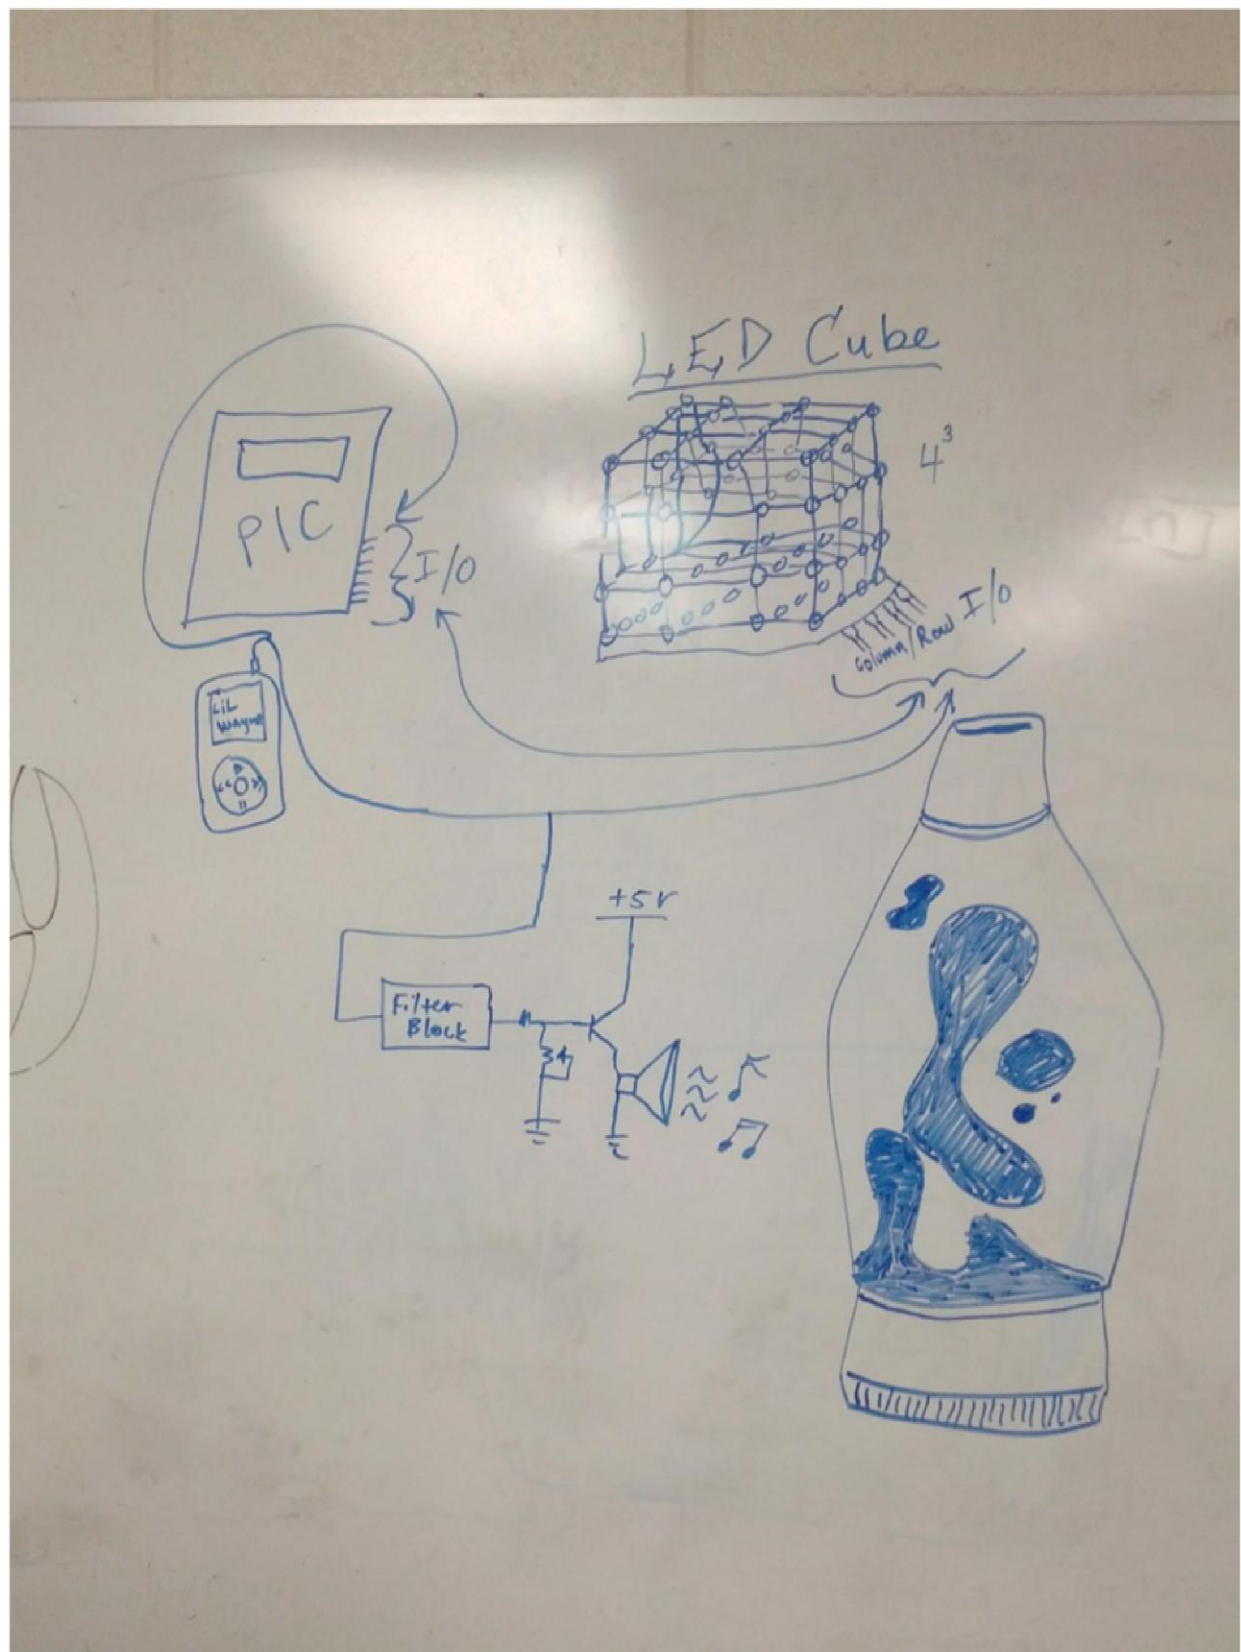 LED Cube
4³
PIC
I/O
Column/Row I/O
LiL
Wayne
+5V
Filter
Block